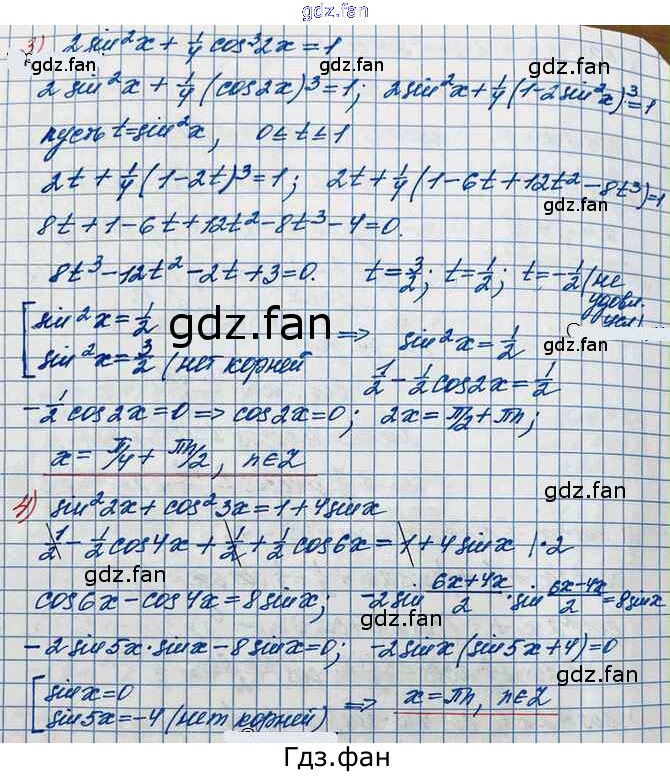 gdz.fan
3) 2sin²x + 1/4 cos³2x = 1
gdz.fan
gdz.fan
2sin²x + 1/4 (cos2x)³ = 1; 2sin²x + 1/4 (1-2sin²x)³ = 1
пусть t = sin²x, 0 ≤ t ≤ 1
gdz.fan
2t + 1/4 (1-2t)³ = 1; 2t + 1/4 (1-6t+12t²-8t³) = 1
gdz.fan
8t + 1 - 6t + 12t² - 8t³ - 4 = 0.
8t³ - 12t² - 2t + 3 = 0. t = 3/2; t = 1/2; t = -1/2 (не
удовл.
усл)
[ sin²x = 1/2
gdz.fan
⇒ sin²x = 1/2
sin²x = 3/2 (нет корней
1/2 - 1/2 cos2x = 1/2
-1/2 cos2x = 0 ⇒ cos2x = 0; 2x = π/2 + πn;
x = π/4 + πn/2, n∈Z
gdz.fan
4) sin²2x + cos²3x = 1 + 4sinx
1/2 - 1/2 cos4x + 1/2 + 1/2 cos6x = 1 + 4sinx |·2
gdz.fan
gdz.fan
cos6x - cos4x = 8sinx; -2sin (6x+4x)/2 · sin (6x-4x)/2 = 8sinx
-2sin5x·sinx - 8sinx = 0; -2sinx(sin5x+4) = 0
gdz.fan
[ sinx = 0
sin5x = -4 (нет корней) ⇒ x = πn, n∈Z
gdz.fan
gdz.fan
Гдз.фан